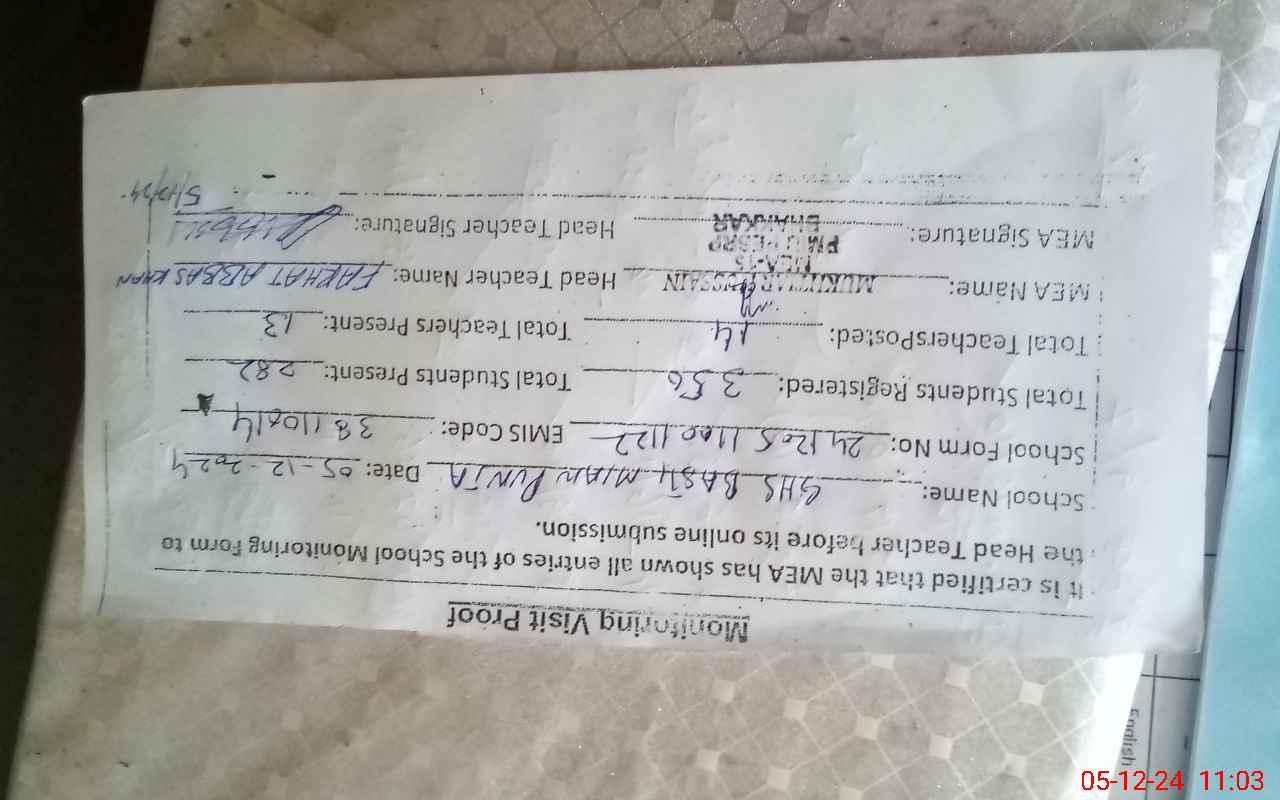 Monitoring Visit Proof
It is certified that the MEA has shown all entries of the School Monitoring Form to
the Head Teacher before its online submission.
School Name: GHS BASTI MIAN PUNJA Date: 05-12-2024
School Form No: 241205 1100 1122 EMIS Code: 38110014
Total Students Registered: 356 Total Students Present: 282
Total TeachersPosted: 14 Total Teachers Present: 13
MEA Name: MUKHTAR HUSSAIN Head Teacher Name: FARHAT ABBAS KHAN
MEA-15
MEA Signature: BHAKKAR Head Teacher Signature:
5/12/24
English
05-12-24 11:03